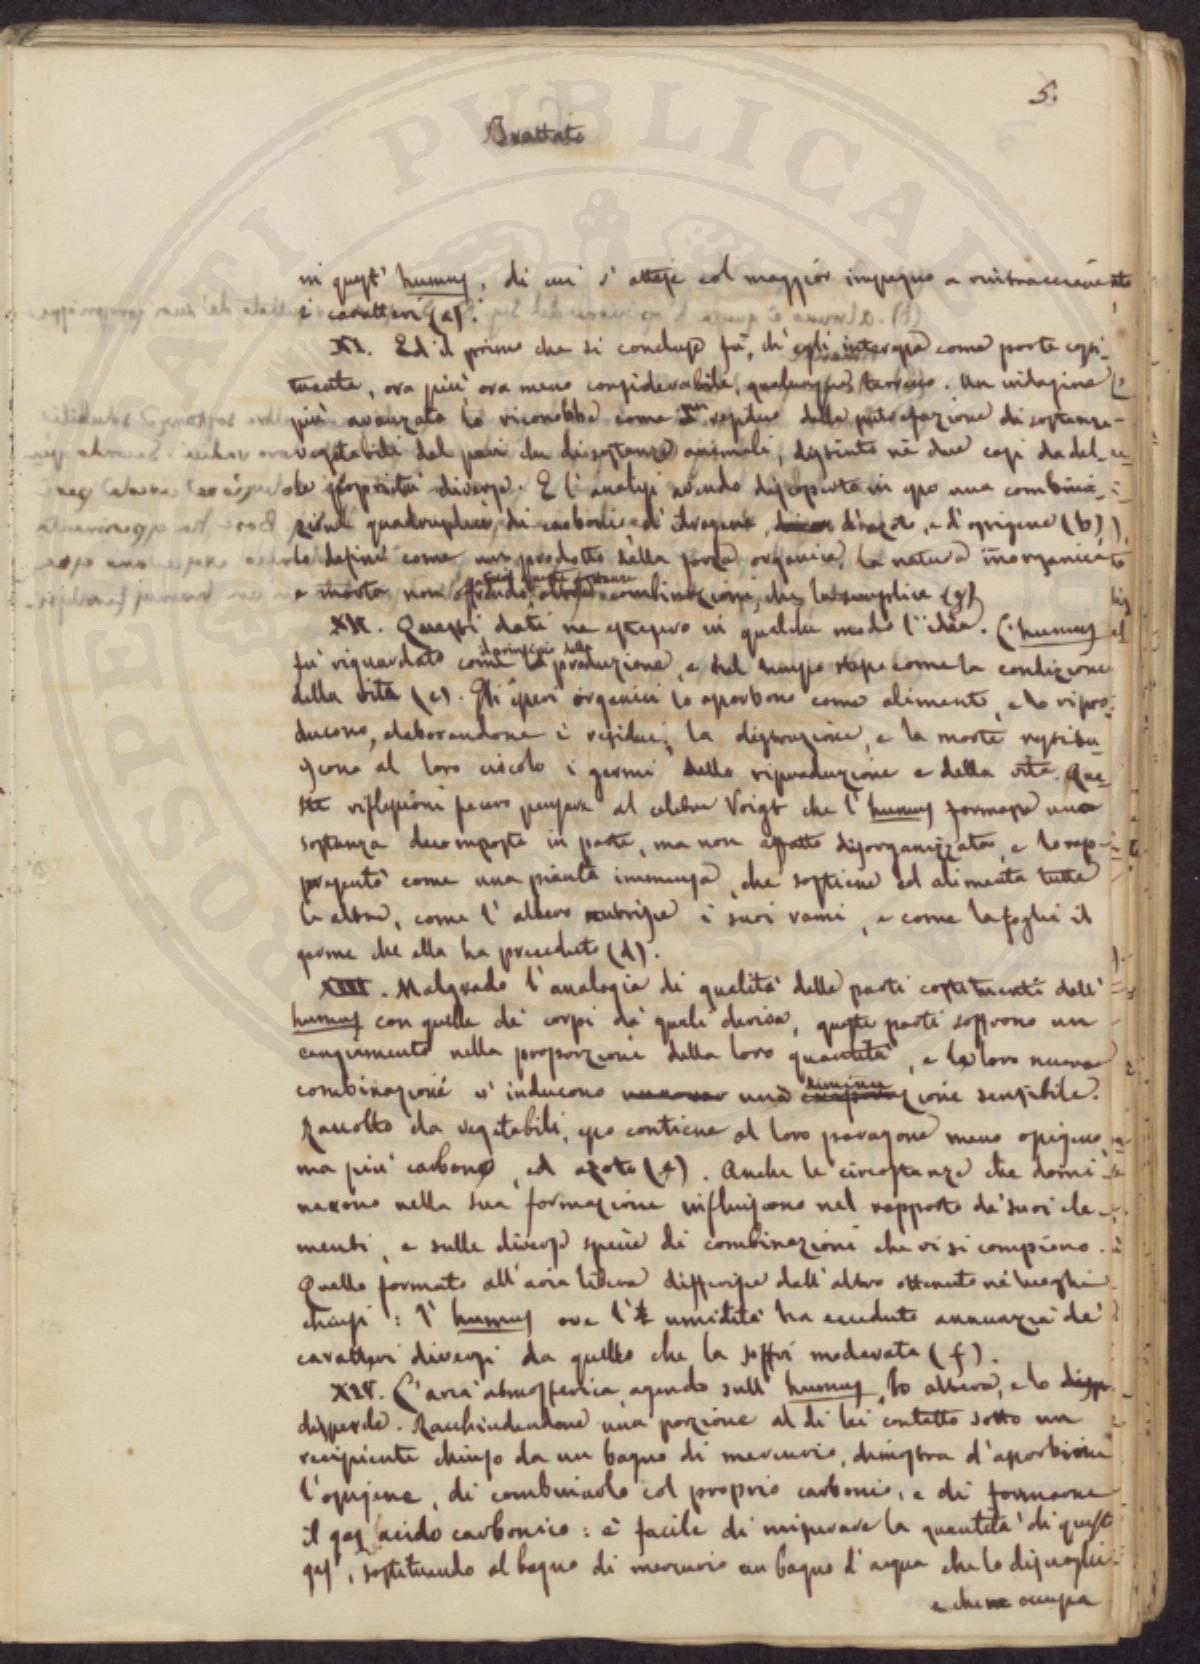 5.
Trattato
in quest' humus, di cui s' attese col maggior impegno a rintracciare
i caratteri (a).
XI. Ed il primo che si concluse fu, ch' egli interessa come parte costi-
tuente, ora più ora meno considerabile, qualunque terreno. Un indagine
più avanzata lo riconobbe come residuo della putrefazione di sostanze
vegetabili del pari che di sostanze animali, distinto nè due casi da del-
le proprietà diverse. E l' analisi avendo discoperto in esso una combina-
zione quadruplice di carbonio d' idrogene, d' azoto, e d' ossigene (b)
lo definì come un prodotto della forza organica, la natura inorganica
e morta non offrendo combinazioni, che la semplice
XII. Questi dati ne estesero in qualche modo l' idea. L' humus
fu riguardato come il principio della produzione, e nel tempo stesso come la condizione
della vita (c). Gli esseri organici lo assorbono come alimento, e lo ripro-
ducono, elaborandone i residui; la distruzione, e la morte restitu-
iscono al loro circolo i germi della riproduzione e della vita. Que-
ste riflessioni fecero pensare al celebre Voigt che l' humus formasse una
sostanza decomposta in parte, ma non affatto disorganizzata, e lo rap-
presentò come una pianta immensa, che sostiene ed alimenta tutte
le altre, come l' albero nutrisce i suoi rami, e come la foglia il
germe che ella ha preceduto (d).
XIII. Malgrado l' analogia di qualità delle parti costituenti dell'
humus con quelle dè corpi da' quali deriva, queste parti soffrono un
cangiamento nella proporzione della loro quantità, e la loro nuova
combinazione v' inducono una diminuzione sensibile.
Raccolto da vegetabili, esso contiene al loro paragone meno ossigeno
ma più carbone, ed azoto (e). Anche le circostanze che domi-
narono nella sua formazione influiscono nel rapporto de' suoi ele-
menti, e sulle diverse specie di combinazioni che vi si compiono.
Quello formato all' aria libera differisce dall' altro ottenuto nè luoghi
chiusi: l' humus ove l' umidità ha ecceduto annunzia dè
caratteri diversi da quello che la soffrì moderata (f).
XIV. L' aria atmosferica agendo sull' humus, lo altera, e lo
disperde. Racchiudendone una porzione al di lei contatto sotto un
recipiente chiuso da un bagno di mercurio, dimostra d' assorbirne
l' ossigene, di combinarlo col proprio carbonio, e di formarne
il gas acido carbonico: è facile di misurare la quantità di questo
gas, sostituendo al bagno di mercurio un bagno d' acqua che lo disciolga
e che ne occupa